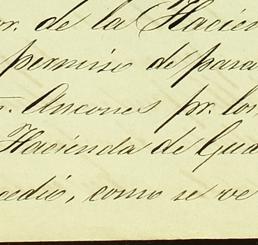 or. de la Hacien
permiso de para
r. Ancones pr. los
Hacienda de Gua
cedió, como se ve